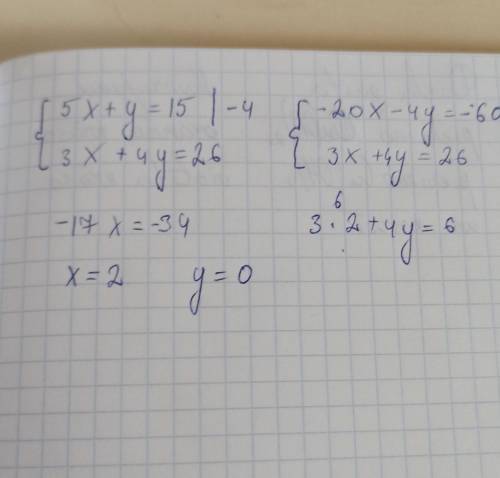 5x+y=15 | -4
3x+4y=26
-20x-4y=-60
3x+4y=26
-17x=-34
6
3·2+4y=6
x=2 y=0